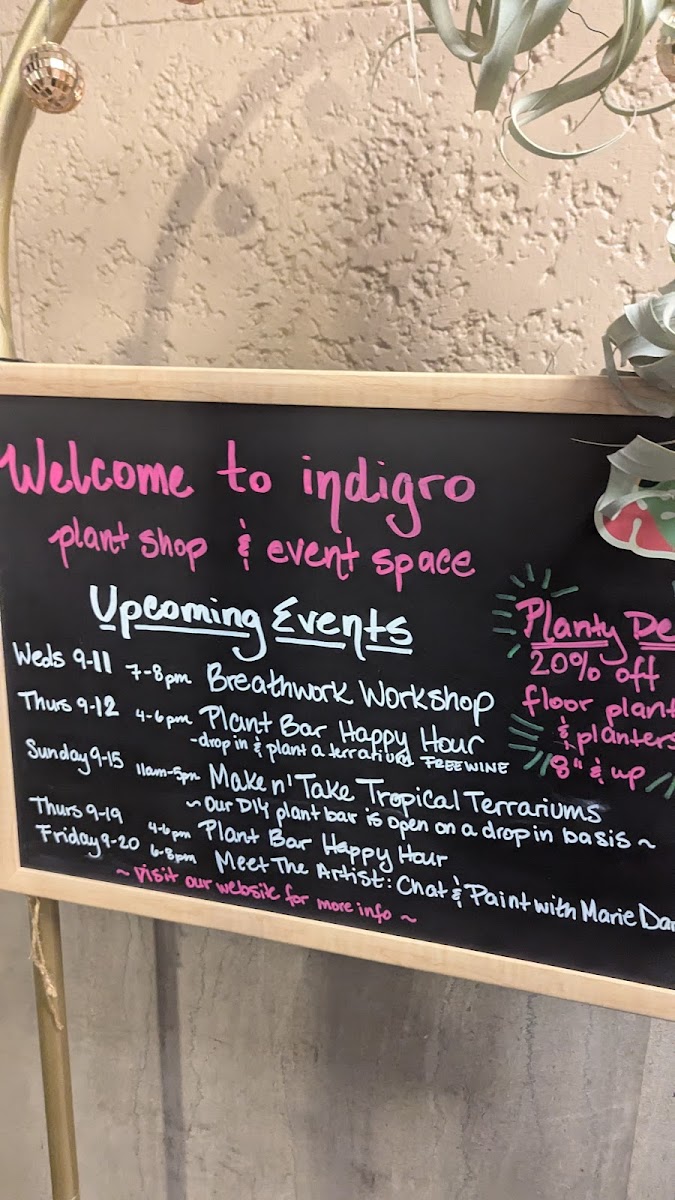 Welcome to indigro
plant shop & event space
Upcoming Events
Weds 9-11 7-8pm Breathwork Workshop
Thurs 9-12 4-6pm Plant Bar Happy Hour
-drop in & plant a terrarium FREE WINE
Sunday 9-15 11am-5pm Make n' Take Tropical Terrariums
~ Our DIY plant bar is open on a drop in basis ~
Thurs 9-19 4-6pm Plant Bar Happy Hour
Friday 9-20 6-8pm Meet The Artist: Chat & Paint with Marie
~ visit our website for more info ~
Planty
20% off
floor
& planters
8" & up